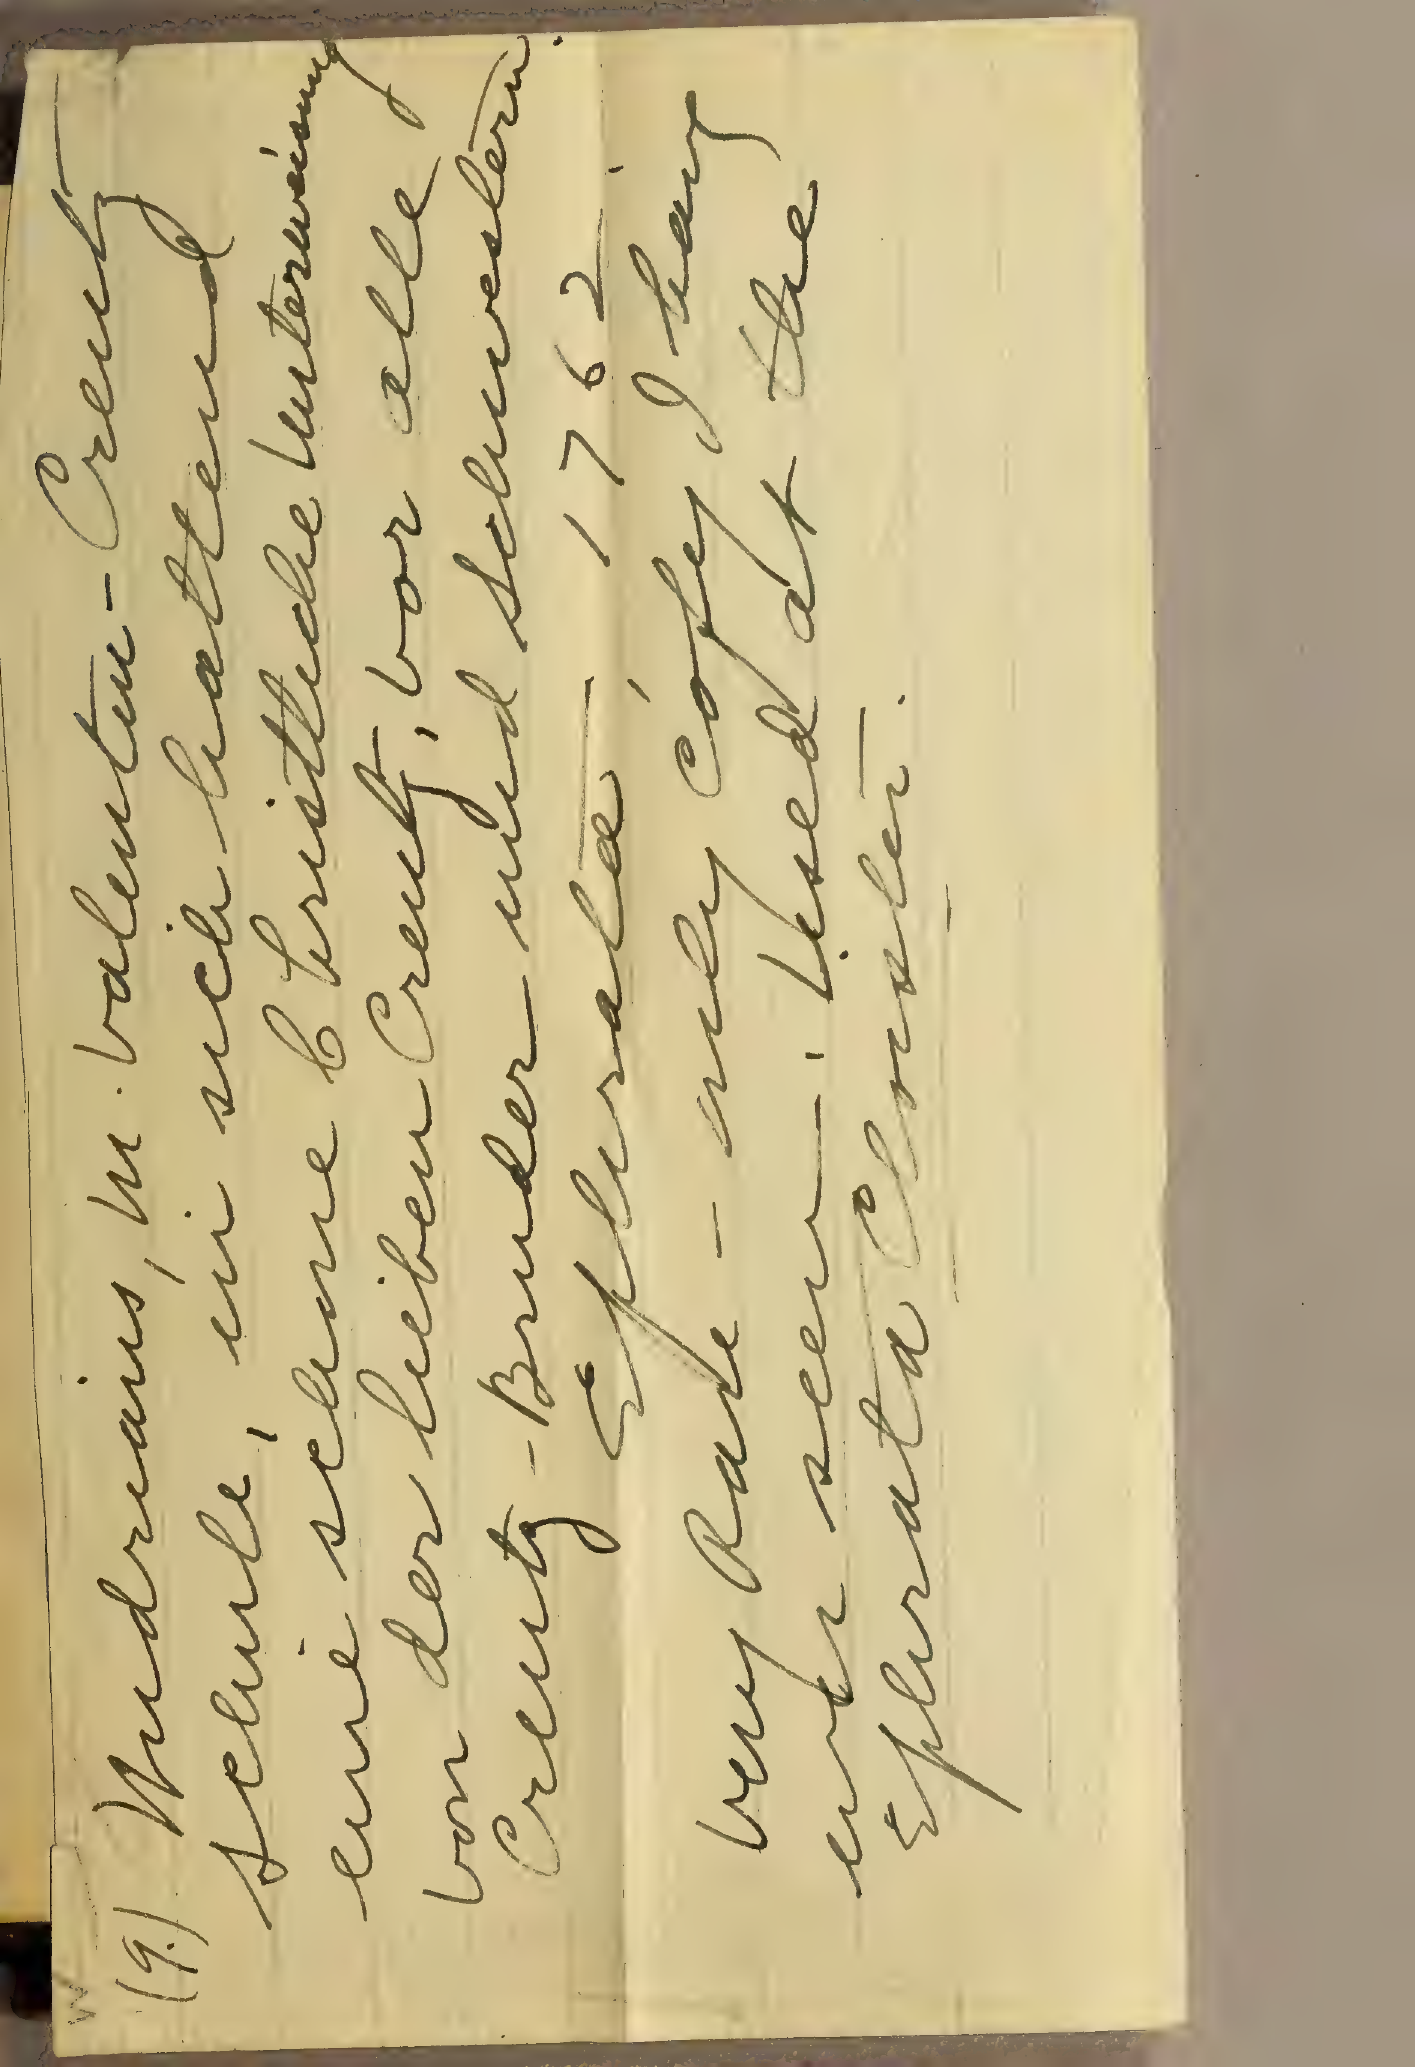 W
(9.) Wudrians, M. Valentin - Creutz
schule, in sich haltend
eine schone Christliche Unterweisung
von der lieben Creutz, vor alle
Creutz - Bruder und Schwestern.
Ephrata 1762
Very Rare - only copy I have
ever seen - Used at the
Ephrata Cloister.